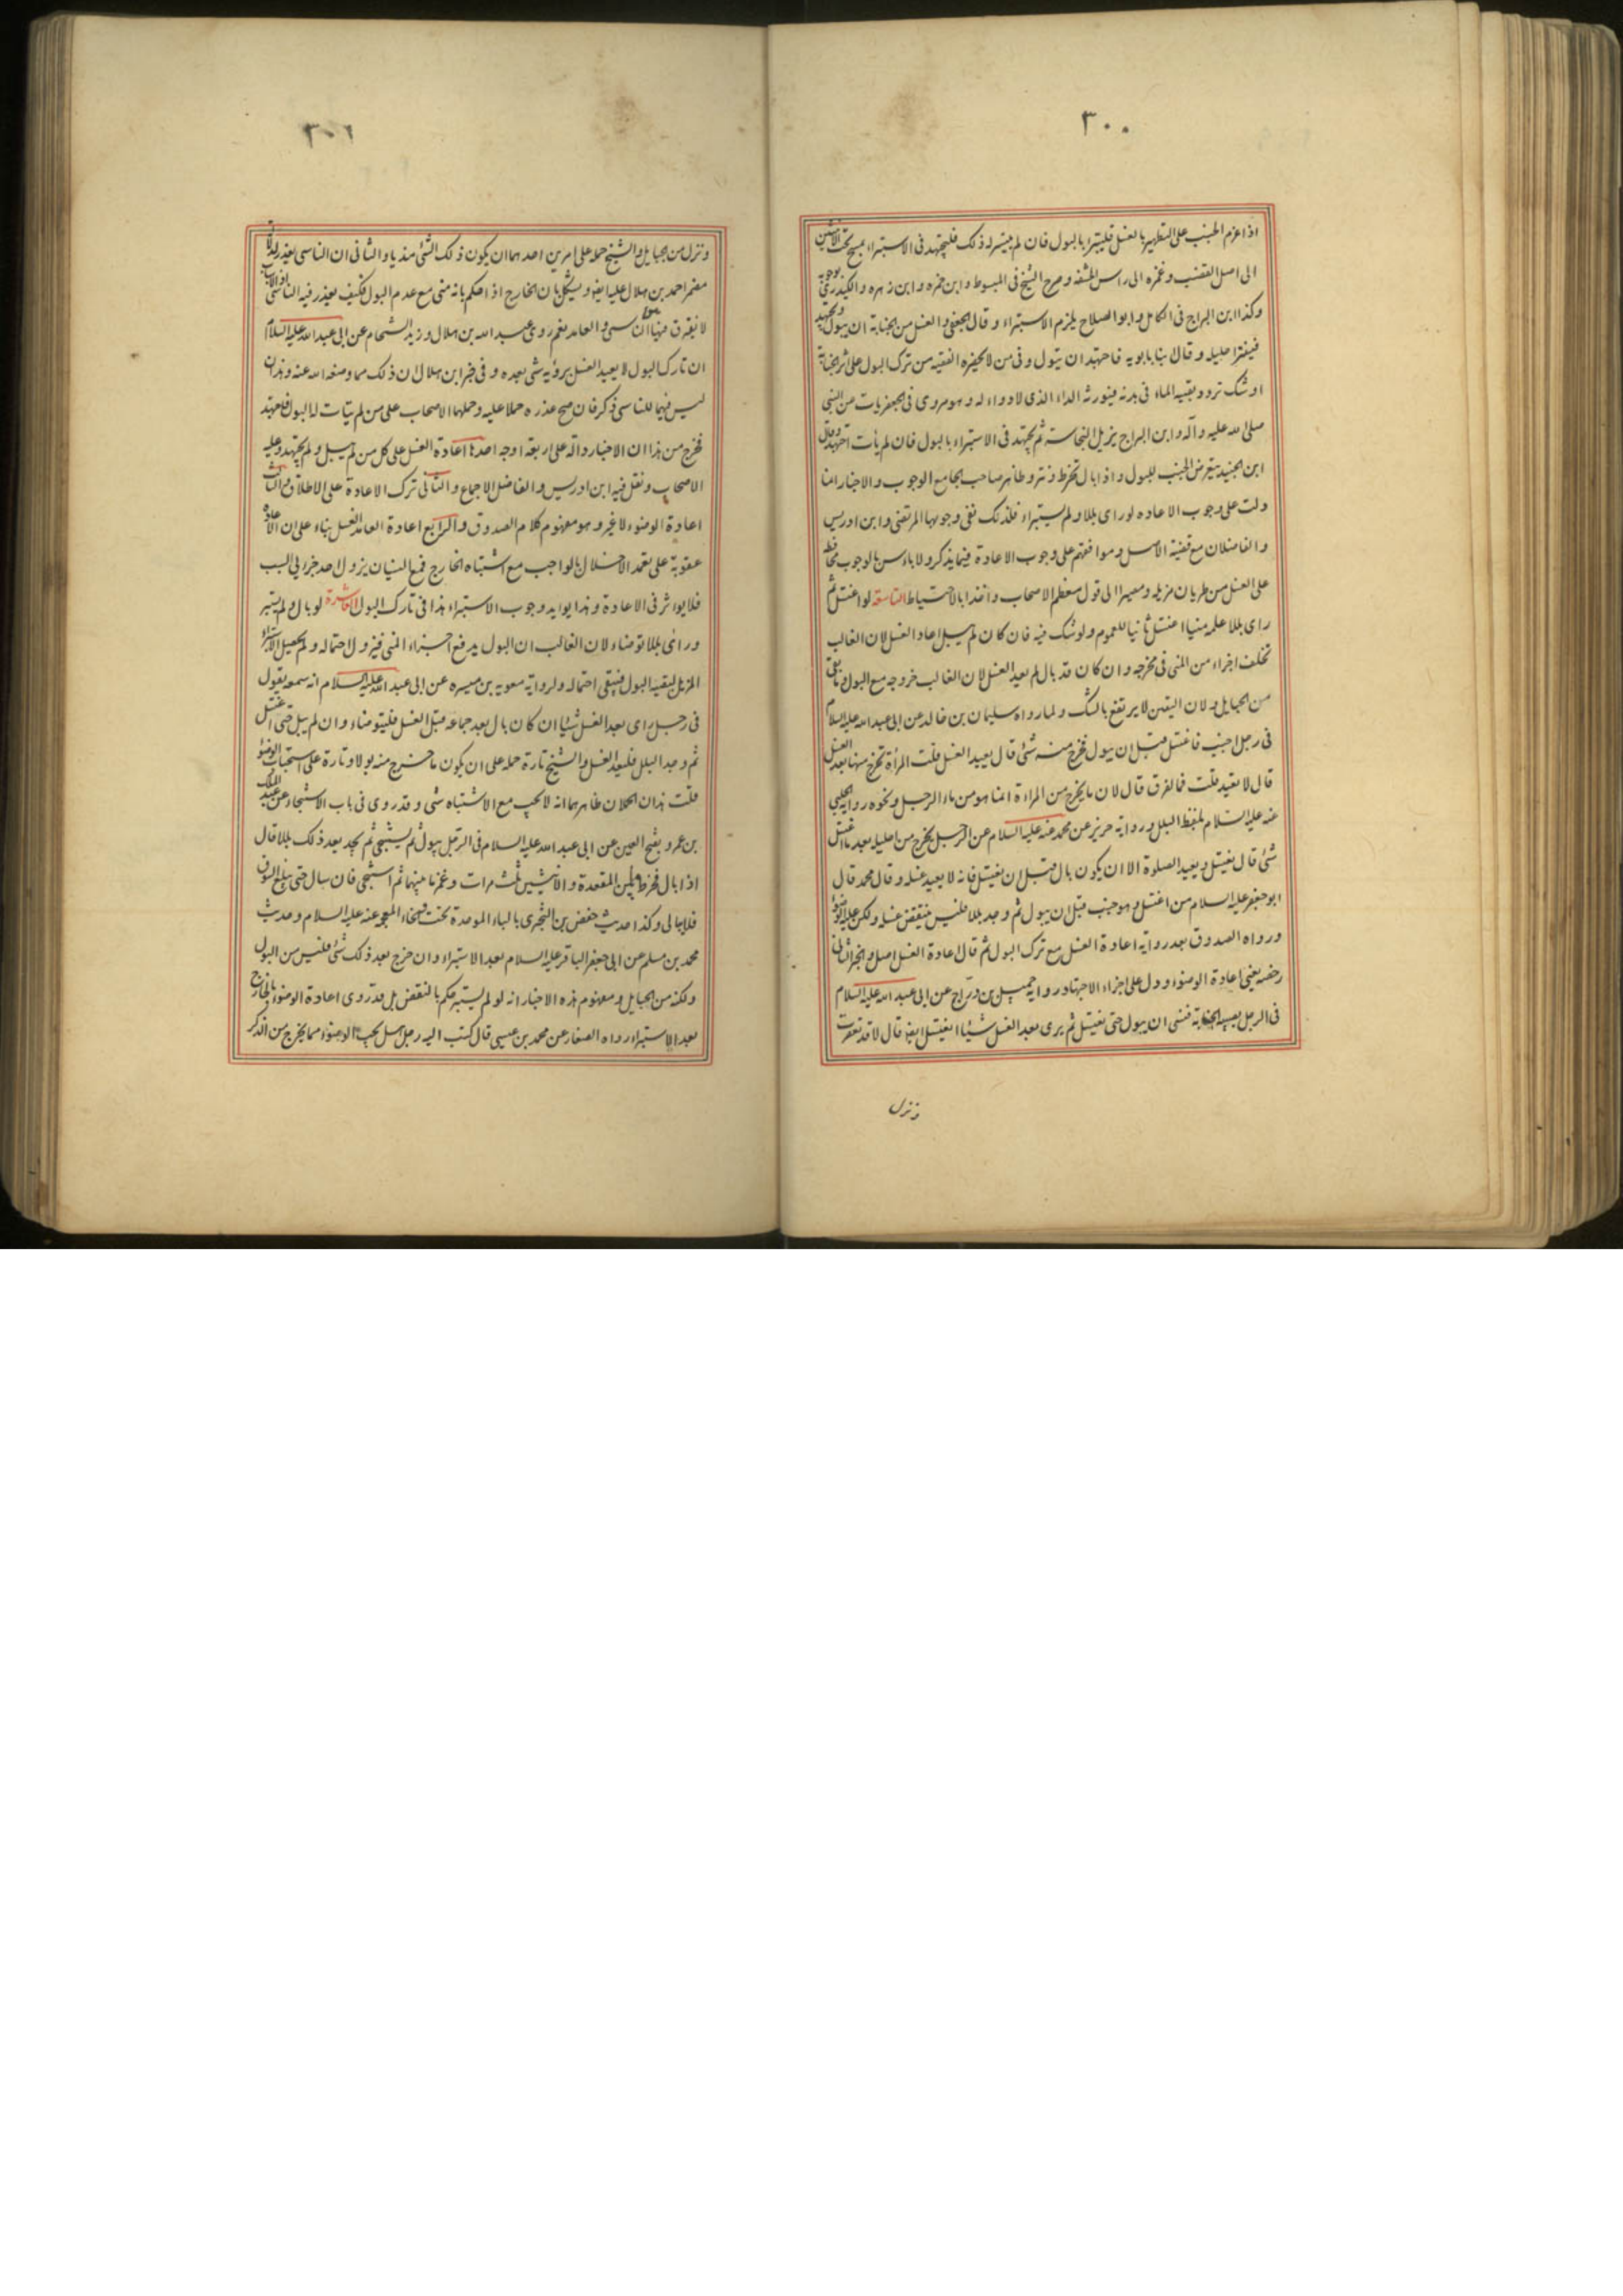 ٣٠٠
اذا عزم الجنب على التطهير بالغسل فليستبرا بالبول فان لم يتيسر له ذلك فليجتهد فى الاستبراء بمسح تحت الانثيين
الى اصل القضيب وغمزه الى راس الحشفه وصرح الشيخ فى المبسوط وابن حمزه وابن زهره والكيدرى بوجوبه
وكذا ابن البراج فى الكامل وابو الصلاح يلزم الاستبراء وقال الجعفى والغسل من الجنابة ان يبول ويجتهد
فينثر احليله وقال ابنا بابويه فاجتهد ان تبول وفى من لا يحضره الفقيه من ترك البول على اثر الجنابة
اوشك تردد بقية الماء فى بدنه فيورثه الداء الذى لا دواء له وهو مروى فى الجعفريات عن النبى
صلى الله عليه وآله وابن البراج يزيل النجاسة ثم يجتهد فى الاستبراء بالبول فان لم يأت اجتهد وقال
ابن الجنيد يتعرض الجنب للبول واذا بال تخرط ونتر وظاهر صاحب الجامع الوجوب والاخبار انما
دلت على وجوب الاعاده لو راى بللا ولم يستبراء فلذلك نفى وجوبها المرتضى وابن ادريس
والفاضلان مع قضية الاصل وموافقتهم على وجوب الاعادة فيما يذكر ولا باس بالوجوب محافظة
على الغسل من طريان مزيله ومصيرا الى قول معظم الاصحاب واخذا بالاحتياط التاسعة لو اغتسل ثم
راى بللا علمه منيا اغتسل ثانيا للعموم ولو شك فيه فان كان لم يبل اعاد الغسل لان الغالب
تخلف اجزاء من المنى فى مخرجه وان كان قد بال لم يعد الغسل لان الغالب خروجه مع البول وما بقى
من الحبايل ولان اليقين لا يرتفع بالشك ولما رواه سليمان بن خالد عن ابى عبد الله عليه السلام
فى رجل اجنب فاغتسل قبل ان يبول فخرج منه شئ قال يعيد الغسل قلت المراة تخرج منها بعد الغسل
قال لا تعيد قلت فما الفرق قال لان ما يخرج من المراءة انما هو من ماء الرجل ونحوه رواية الحلبى
عنه عليه السلام بلفظ البلل ورواية حريز عن محمد عنه عليه السلام عن الرجل يخرج من احليله بعد ما اغتسل
شئ قال يغتسل ويعيد الصلوة الا ان يكون بال قبل ان يغتسل فانه لا يعيد غسله وقال محمد قال
ابو جعفر عليه السلام من اغتسل وهو جنب قبل ان يبول ثم وجد بللا فليس ينقض غسله ولكن عليه الوضوء
ورواه الصدوق بعد رواية اعادة الغسل مع ترك البول ثم قال اعادة الغسل اصل والخبر الثانى
رخصه يعنى اعادة الوضوء ودل على اجزاء الاجتهاد رواية جميل بن دراج عن ابى عبد الله عليه السلام
فى الرجل يصيبه الجنابة فنسى ان يبول حتى يغتسل ثم يرى بعد الغسل شيئا ايغتسل ايضا قال لا قد تعصرت
ونزل
٣٠١
ونزل من الحبايل والشيخ حمله على امرين احدهما ان يكون ذلك الشئ مذيا والثانى ان الناسى يعذر
مضمر احمد بن هلال عليه ايضا ويشكل بان الخارج اذا حكم بانه منى مع عدم البول فكيف يعذر فيه الناسى
لا يفرق فيها الناسى والعامد نعم روى عبد الله بن هلال وزيد الشحام عن ابى عبد الله عليه السلام
ان تارك البول لا يعيد الغسل برؤية شى بعده وفى خبر ابن هلال ان ذلك مما وضعه الله عنه وهذان
ليس فيهما للناسى ذكر فان صح عذره حملا عليه وحملهما الاصحاب على من لم يتات له البول فاجتهد
فخرج من هذا ان الاخبار دالة على اربعة اوجه احدها اعادة الغسل على كل من لم يبل ولم يجتهد وعليه
الاصحاب ونقل فيه ابن ادريس والفاضل الاجماع والثانى ترك الاعادة على الاطلاق والثالث
اعادة الوضوء لا غير وهو مفهوم كلام الصدوق والرابع اعادة العامد الغسل بناء على ان الاعادة
عقوبة على تعمد الاخلال بالواجب مع اشتباه الخارج فمع النسيان يزول احد جزئى السبب
فلا يؤثر فى الاعادة وهذا يؤيد وجوب الاستبراء هذا فى تارك البول العاشرة لو بال ولم يستبر
وراى بللا توضاء لان الغالب ان البول يدفع اجزاء المنى فيزول احتماله ولم يحصل الاستبراء
المزيل لبقية البول فيبقى احتماله ولرواية معوية بن ميسره عن ابى عبد الله عليه السلام انه سمعه يقول
فى رجل راى بعد الغسل شيئا ان كان بال بعد جماعه قبل الغسل فليتوضاء وان لم يبل حتى اغتسل
ثم وجد البلل فليعد الغسل والشيخ تارة حمله على ان يكون ما خرج منه بولا وتارة على استحباب الوضوء
قلت هذان الحملان ظاهرهما انه لا يجب مع الاشتباه شى وقد روى فى باب الاستنجاء عن عبد الملك
بن عمرو بفتح العين عن ابى عبد الله عليه السلام فى الرجل يبول ثم يستنجى ثم يجد بعد ذلك بللا قال
اذا بال فخرط ما بين المقعدة والانثيين ثلث مرات وغمز ما بينهما ثم استنجى فان سال حتى يبلغ السوق
فلا يبالى وكذا حديث حفص بن البخترى بالباء الموحدة تحت والخاء المعجمة عنه عليه السلام وحديث
محمد بن مسلم عن ابى جعفر الباقر عليه السلام بعد الاستبراء وان خرج بعد ذلك شئ فليس من البول
ولكنه من الحبايل ومفهوم هذه الاخبار انه لو لم يستبر حكم بالنقض بل قد روى اعادة الوضوء بالخارج
بعد الاستبراء رواه الصفار عن محمد بن عيسى قال كتب اليه رجل هل يجب الوضوء مما يخرج من الذكر